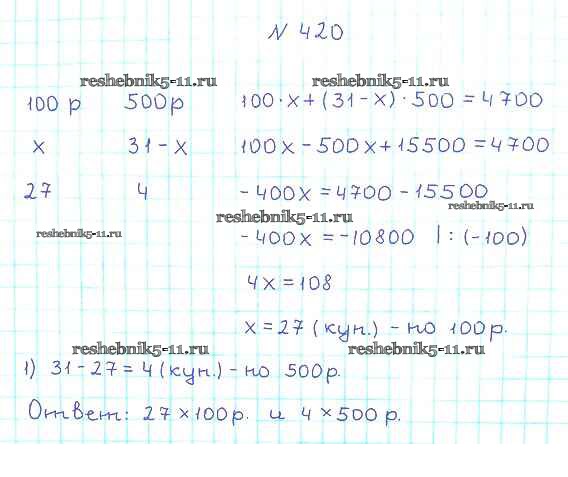 N 420
reshebnik5-11.ru reshebnik5-11.ru
100 р 500р 100·х+(31-х)·500=4700
х 31-х 100х-500х+15500=4700
27 4 -400х=4700-15500
reshebnik5-11.ru
reshebnik5-11.ru
reshebnik5-11.ru
-400х=-10800 |:(-100)
4х=108
х=27 (куп.) - по 100р.
reshebnik5-11.ru reshebnik5-11.ru
1) 31-27=4 (куп.) - по 500р.
Ответ: 27×100р. и 4×500р.